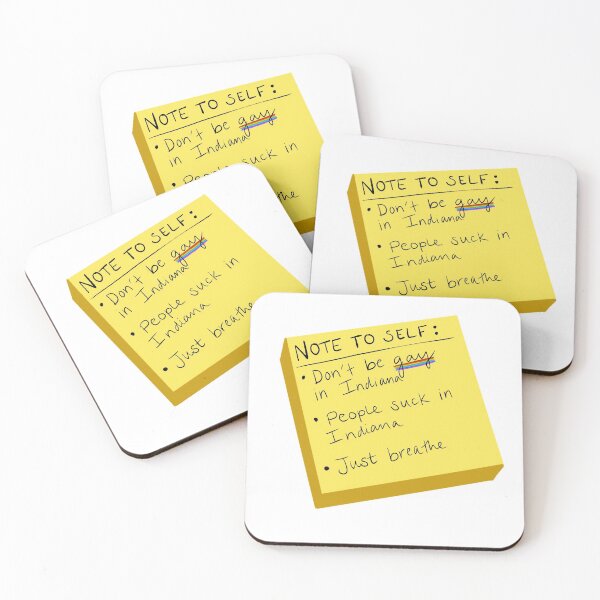 NOTE TO SELF:
• Don't be gay
in Indiana
• People suck in
NOTE TO SELF:
• Don't be gay
in Indiana
• People suck in
Indiana
• Just breathe
NOTE TO SELF:
• Don't be gay
in Indiana
• People suck in
Indiana
• Just breathe
NOTE TO SELF:
• Don't be gay
in Indiana
• People suck in
Indiana
• Just breathe